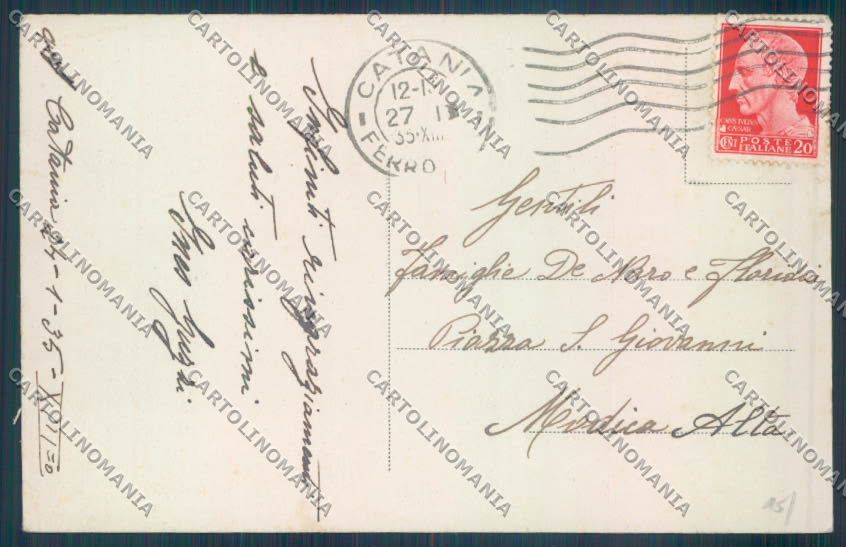 Catania 24-1-35-XIIIº
Infiniti ringraziamenti
e saluti carissimi
CATANIA
12-1
27 I
35·XIII
FERRO
CAIVS IVLIVS
CAESAR
CENT POSTE ITALIANE 20
Gentili
Famiglie De Naro e Floridia
Piazza S. Giovanni
Modica Alta
CARTOLINOMANIA